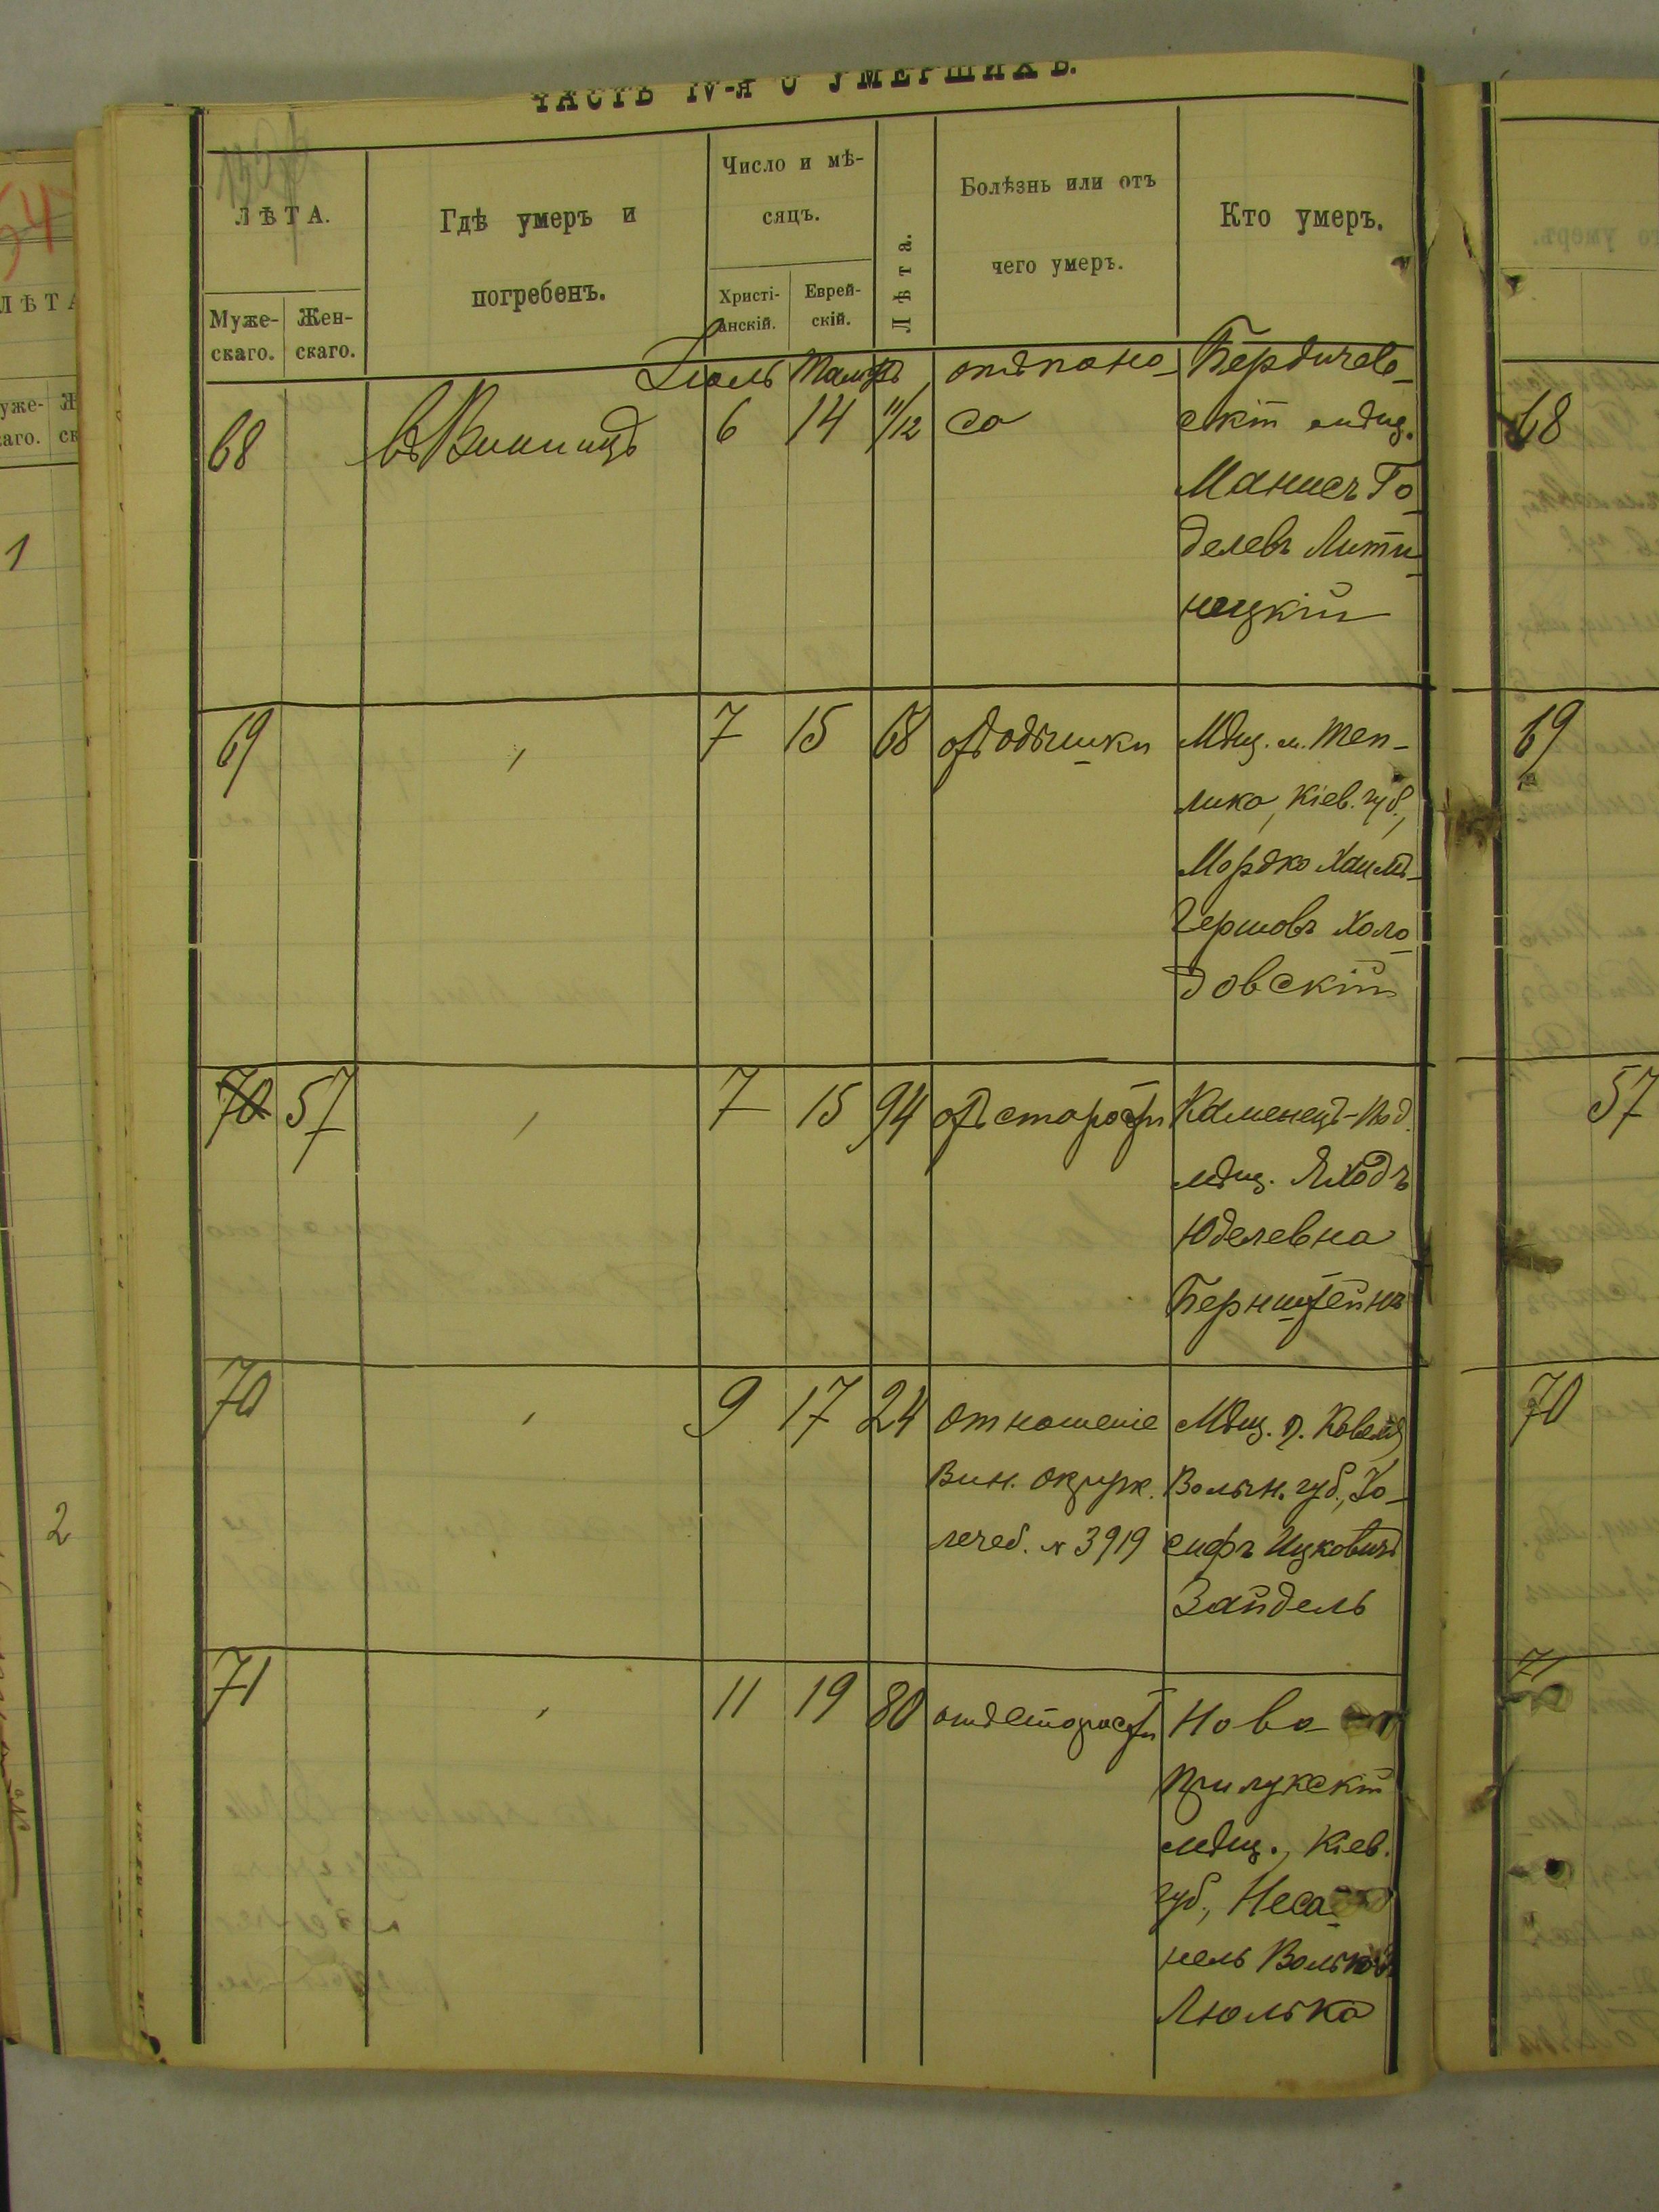 ЧАСТЬ IV-я О УМЕРШИХЪ.
ЛѢТА.
Муже-
скаго.
Жен-
скаго.
Гдѣ умеръ и
погребенъ.
Число и мѣ-
сяцъ.
Христі-
анскій.
Еврей-
скій.
Лѣта.
Болѣзнь или отъ
чего умеръ.
Кто умеръ.
Іюль
68
въ Винницѣ
6
14
11/12
отъ поно-
са
Бердичев-
скій мѣщ.
Манисъ Го-
делевъ Лити-
нецкій
69
7
15
68
отъ одышки
Мѣщ. м. Теп-
лика, Кіев. губ.,
Мордко Хаимъ-
Гершовъ Холо-
довскій
70 57
7
15
94
отъ старости
Каменецъ-Под.
мѣщ.
Юделевна
Бернштейнъ
70
9
17
24
отношеніе
Вин. окруж.
лечеб. № 3919
Мѣщ. г.
Волын. губ., Іо-
сифъ Ицковичъ
Зайдель
71
11
19
80
отъ старости
Ново-
прилукскій
мѣщ., Кіев.
губ., Неса-
нель
Люлька
68
69
57
70
71
1
2